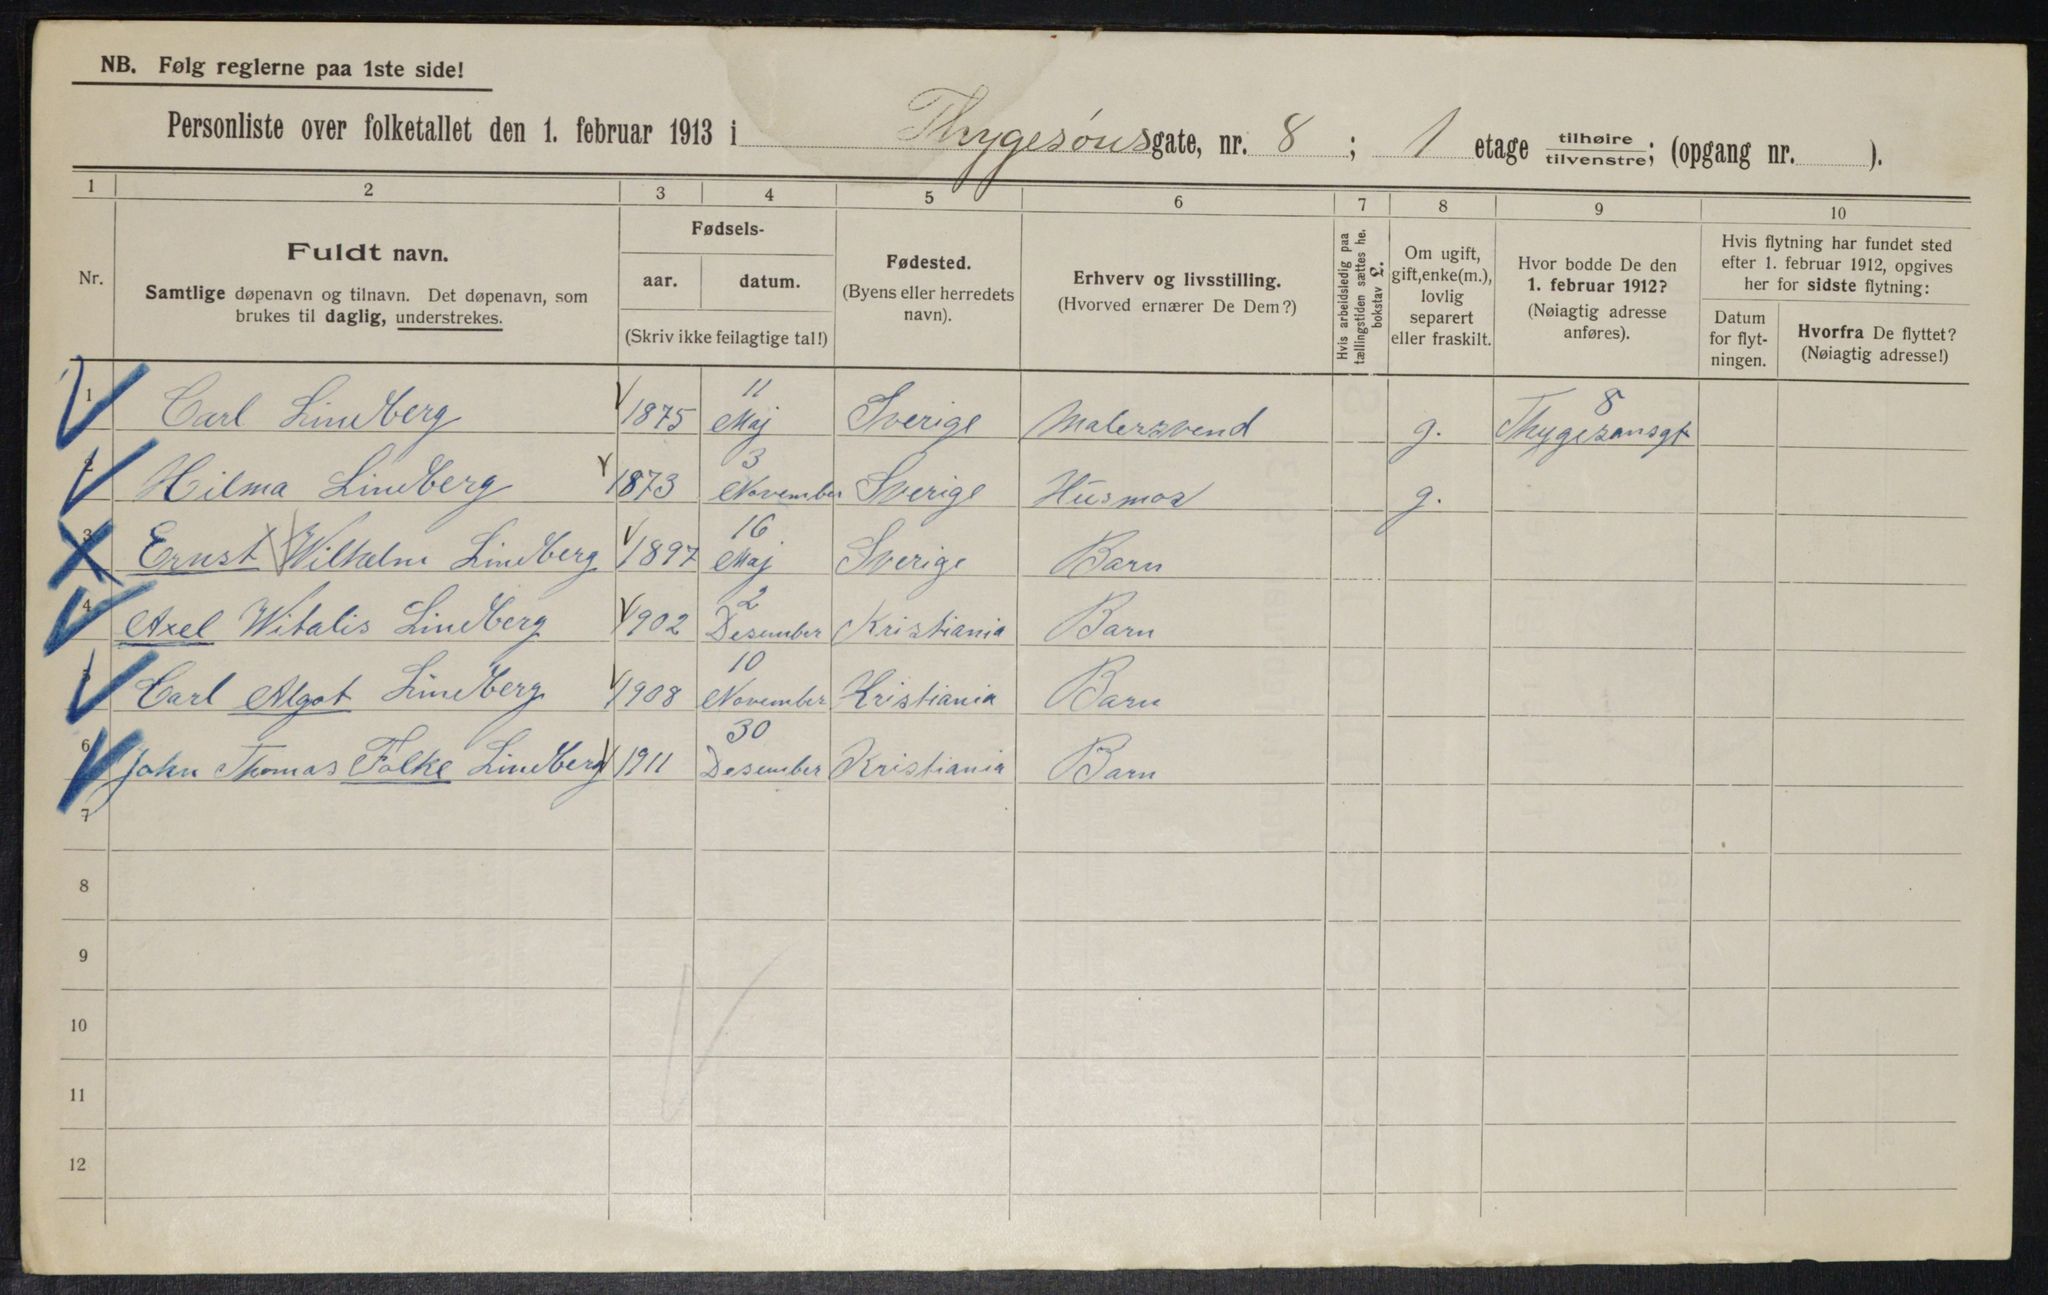 NB. Følg reglerne paa 1ste side!
Personliste over folketallet den 1. februar 1913 i Thygesønsgate, nr. 8 ; 1 etage tilhøire/tilvenstre; (opgang nr. ).
1 2 3 4 5 6 7 8 9 10
Nr.
Fuldt navn.
Samtlige døpenavn og tilnavn. Det døpenavn, som
brukes til daglig, understrekes.
Fødsels-
aar. datum.
(Skriv ikke feilagtige tal!)
Fødested.
(Byens eller herredets
navn).
Erhverv og livsstilling.
(Hvorved ernærer De Dem?)
Hvis arbeidsledig paa
tællingstiden sættes he.
bokstav L.
Om ugift,
gift, enke(m.),
lovlig
separert
eller fraskilt.
Hvor bodde De den
1. februar 1912?
(Nøiagtig adresse
anføres).
Hvis flytning har fundet sted
efter 1. februar 1912, opgives
her for sidste flytning:
Datum
for flyt-
ningen.
Hvorfra De flyttet?
(Nøiagtig adresse!)
1 Carl Lindberg 1875 11 Maj Sverige Malersvend g. Thygesonsgt 8
2 Hilma Lindberg 1873 3 November Sverige Husmor g.
3 Ernst Wilhelm Lindberg 1897 16 Maj Sverige Barn
4 Axel Witalis Lindberg 1902 2 Desember Kristiania Barn
5 Carl Algot Lindberg 1908 10 November Kristiania Barn
6 John Thomas Folke Lindberg 1911 30 Desember Kristiania Barn
7
8
9
10
11
12